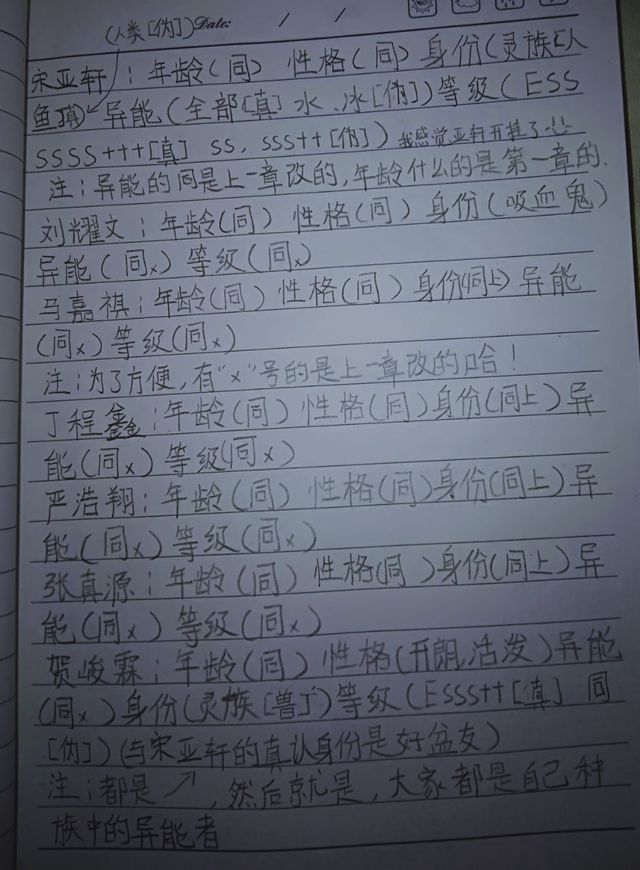 (人类[伪]) Date: / /
宋亚轩：年龄(同) 性格(同) 身份(灵族[人
鱼]真) 异能(全部[真] 水、冰[伪]) 等级(ESS
SSSS+++[真] SS、SSS++[伪]) 我感觉亚轩开挂了
注：异能的同是上一章改的,年龄什么的是第一章的.
刘耀文：年龄(同) 性格(同) 身份(吸血鬼)
异能(同x) 等级(同x)
马嘉祺：年龄(同) 性格(同) 身份(同上) 异能
(同x) 等级(同x)
注：为了方便,有"x"号的是上一章改的哈！
丁程鑫：年龄(同) 性格(同) 身份(同上) 异
能(同x) 等级(同x)
严浩翔：年龄(同) 性格(同) 身份(同上) 异
能(同x) 等级(同x)
张真源：年龄(同) 性格(同) 身份(同上) 异
能(同x) 等级(同x)
贺峻霖：年龄(同) 性格(开朗,活泼) 异能
(同x) 身份(灵族[兽]) 等级(ESSS++[真] 同
[伪]) (与宋亚轩的真认身份是好盆友)
注：都是↗,然后就是,大家都是自己种
族中的异能者